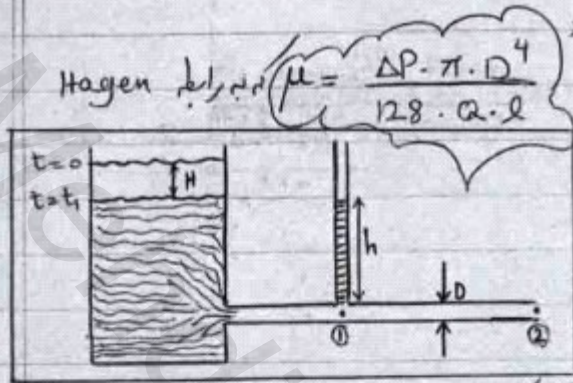 Hagen رابطه μ = ΔP · π · D⁴ / 128 · Q · l
t=0
H
t=t₁
h
D
① ②